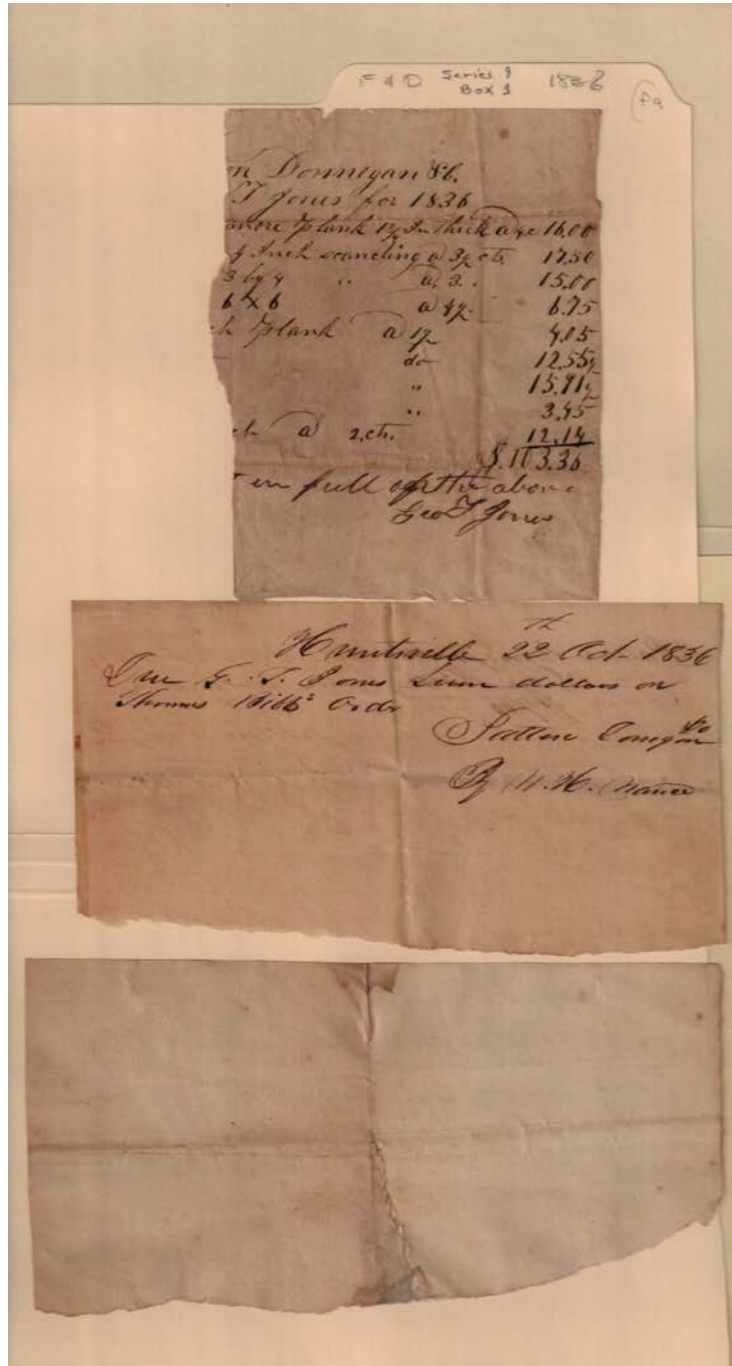 F & D Series 1 1836
Box 1
Pa
on Donnegan &C.
T Jones for 1836
more plank 1½ In thick a 4c 16.00
4 Inch scantling a 3½ cts. 17.50
3 by 4 " a, 3 . . 15.00
6 x 6 a 4½ 6.75
ch plank a 1½ 4.05
do 12.55½
" 15.91½
" 3.45
ch a 2 cts. 12.14
$.103.36
in full of the above
Geo T Jones
Huntsville 22 Oct. 1836
Due G. T. Jones dollars on
Thomas Bibbs Order
Patton Donegan &Co
By H. Nance